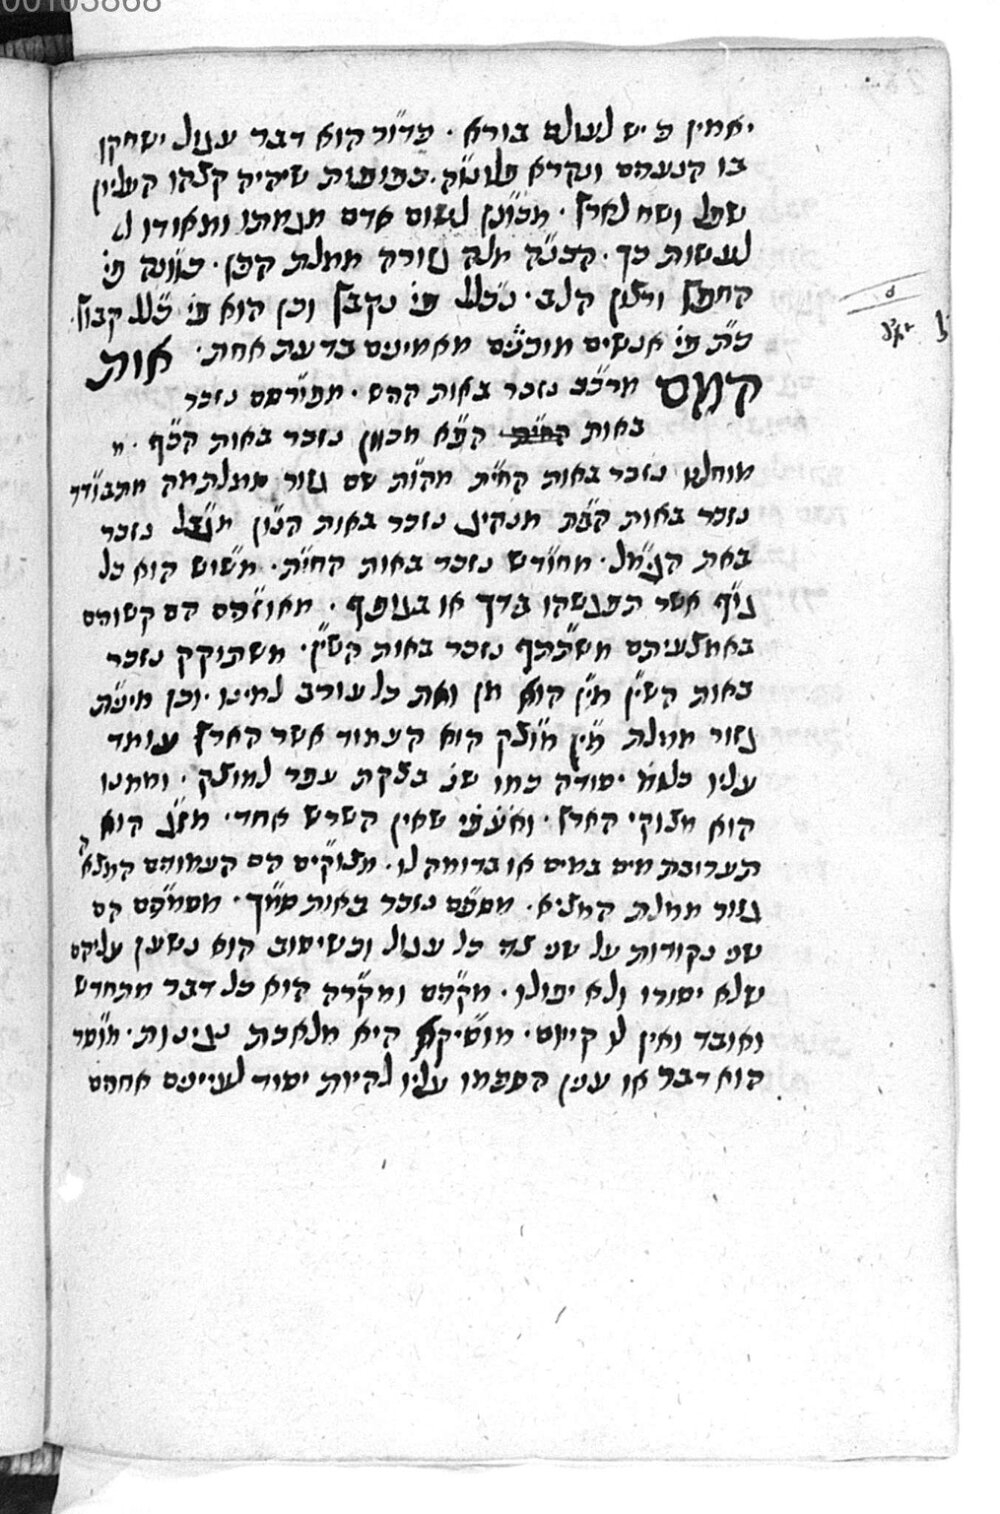 00103868
יאמין כי יש לעולם בורא · כדור הוא דבר עגול ישחקו
בו הנערים ונקרא פלוטה · כפיפות שיהיה קצהו העליון
שפל ושח לארץ · מכוונן לשום אדם מגמתו ומאודו ל
לעשות כך · הכנה מלה גזורה ממלת הכן · כוונה פי'
החפץ ורצון הלב · נכלל פי' נקבץ וכן הוא פי' כלל קבוץ ·
כת פי' אנשים מוכנים מאמינים בדעת אחת · אות
המם מרכב נזכר באות ההש · מפורסם נזכר
באות הפא מכוון נזכר באות הכף · מ
מוחלט נזכר באות החית מהות שם גזור מתבודד
נזכר באות הבת מנהיג נזכר באות הנון מגבל נזכר
באת הגימל · מחודש נזכר באות החית · משוש הוא כל
גוף אשר תמששהו בידך או בגופך · מאורעים הם קשורים
באמצעיתם משתתף נזכר באות השין · משתוקק נזכר
באות השין מין הוא מן ואת כל עורב למינו · וכן מינית
גזור ממלת מין מוצק הוא העמוד אשר הארץ עומד
עליו כלומ' יסודה כמו שנ' בצקת עפר למוצק · וממנו
הוא מצוקי הארץ · ואעפי שאין השרש אחד · מזג הוא
תערובת מים במים או בדומה לו · מצויים הם העמודים המצא
גזור ממלת המציא · מסכים נזכר באות סמך · מסמכים הם
שני נקודות על שני צדי כל עגול וכשיסוב הוא נשען עליהם
שלא יסורו ולא יפולו · מקרים ומקרה הוא כל דבר מתחדש
ואובד ואין לו קיום · מוסיקא היא מלאכת נגינות · מוסד
הוא דבר או ענין הסכמו עליו להיות יסוד לעניינים אחרים